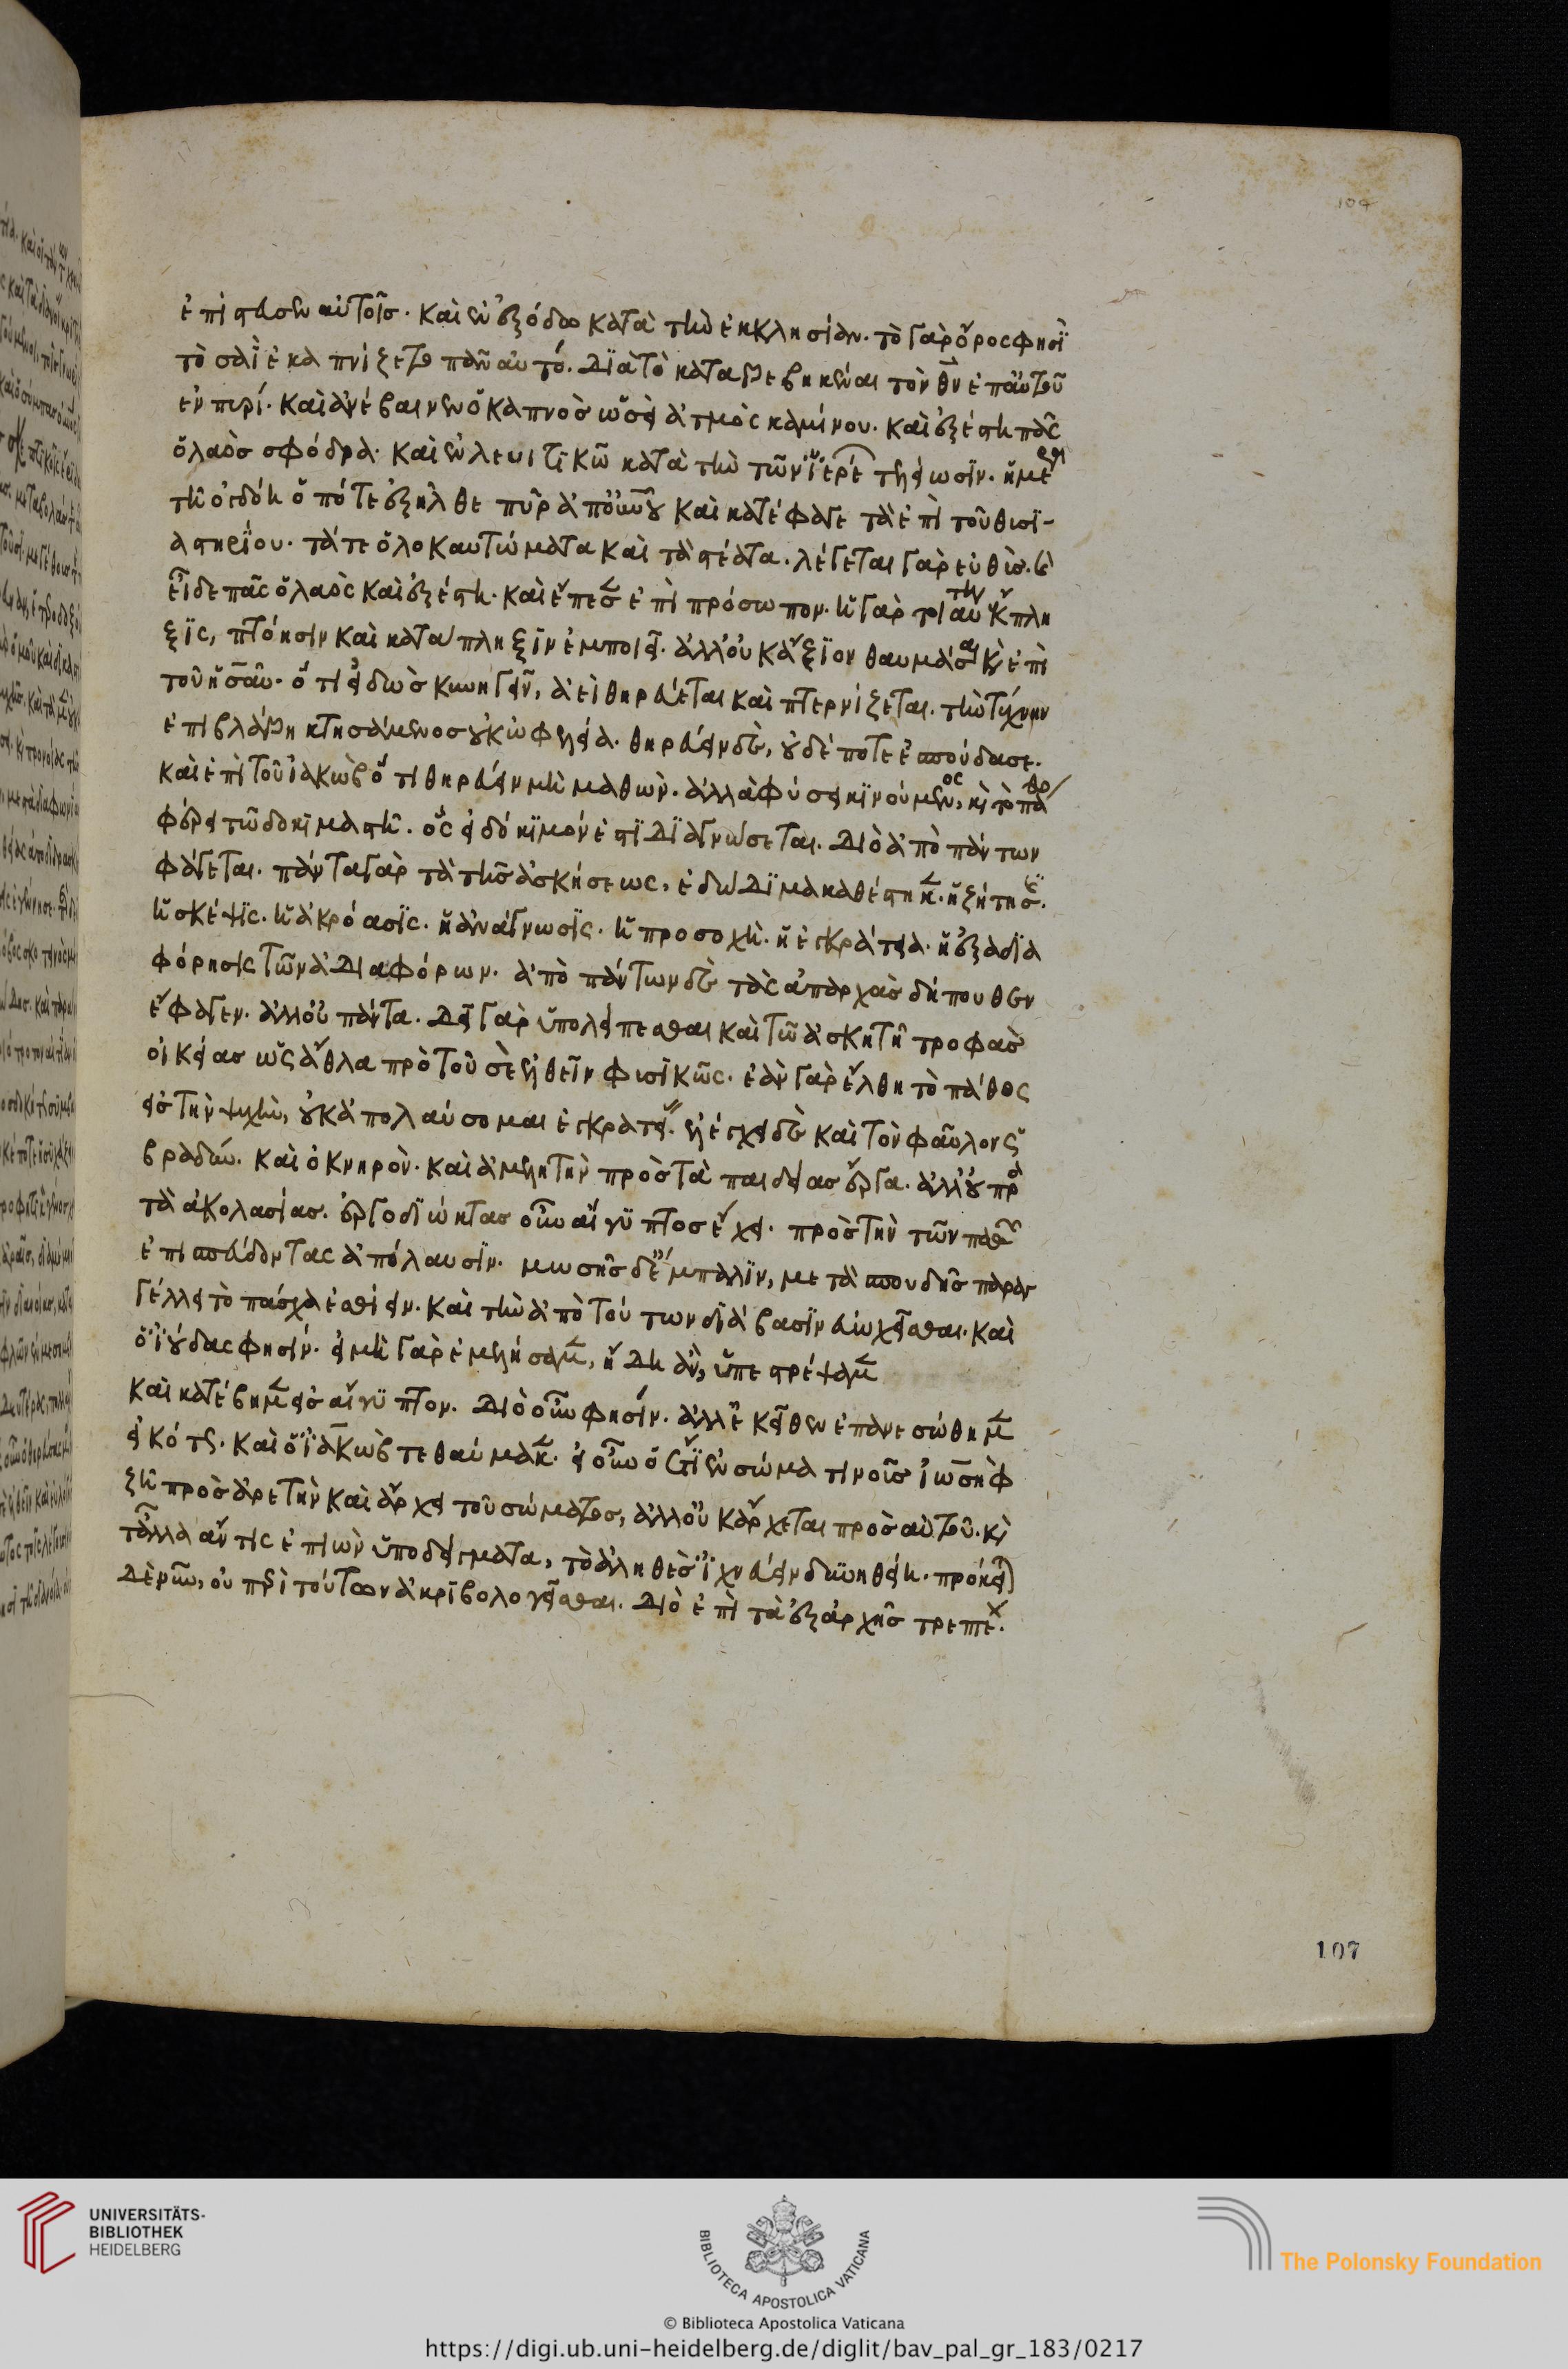 ἐπιστευσεν αὐτοῖσ. καὶ ἐν ἐξόδω κατὰ τὴν ἐκκλησίαν. τὸ γὰρ ὄρος φησὶ
τὸ σαῒ ἐκαπνίζετο πᾶν αὐτό. διὰ τὸ καταβεβηκέναι τὸν θν ἐπ αὐτοῦ
ἐν πυρί. καὶ ἀνέβαινεν ὁ καπνοσ ὡσεὶ ἀτμὸς καμίνου. καὶ ἐξέστη πᾶς
ὁ λαὸσ σφόδρα. καὶ ἐν λευιτικῶ κατὰ τὴν τῶν ἱερέ τηείωσιν. ἡμε
τῆ ὀγδόη ὁπότε ἐξῆλθε πῦρ ἀπ οὐνοῦ καὶ κατέφαγε τὰ ἐπὶ τοῦ θυσι-
αστηρίου. τά τε ὁλοκαυτώματα καὶ τὰ στέατα. λέγεται γὰρ εὐθὺσ. καὶ
εἶδε πᾶς ὁ λαὸς καὶ ἐξέστη. καὶ ἔπεσ ἐπὶ πρόσωπον. ἡ γὰρ τοιαύτη ἔκπλη
ξις, πτόησιν καὶ κατάπληξιν ἐμποιεῖ. ἀλλ οὐκ ἄξιον θαυμάσαι καὶ ἐπὶ
τοῦ ἡσαῦ. ὅτι εἰδὼσ κυνηγεῖν, ἀεὶ θηρεύεται καὶ πτερνίζεται. τὴν τέχνην
ἐπι βλάβη κτησάμενοσ οὐκ ὠφελεία. θηρεύειν δὲ, οὐδέποτε ἐσπούδασε.
καὶ ἐπὶ τοῦ ἰακὼβ ὅτι θηρεύειν μὴ μαθὼν. ἀλλὰ φύσει κινούμενος, καὶ τὸ πάθο
φέρει τῶ δοκιμαστῆ. ὃς εἰ δόκιμόν ἐστι διαγνώσεται. διὸ ἀπὸ πάντων
φάγεται. πάντα γὰρ τὰ τῆσ ἀσκήσεως, ἐδώδιμα καθέστηκ. ἡ ζήτησις.
ἡ σκέψις. ἡ ἀκρόασις. ἡ ἀνάγνωσις. ἡ προσοχὴ. ἡ ἐγκράτεια. ἡ ἐξαδια
φόρησις τῶν ἀδιαφόρων. ἀπὸ πάντων δὲ τὰς ἀπαρχὰσ δήπουθεν
ἔφαγεν. ἀλλ οὐ πάντα. δεῖ γὰρ ὑπολείπεσθαι καὶ τῶ ἀσκητῆ τροφὰσ
οἰκείασ ὡς ἆθλα πρὸ τοῦ σὲ ἐλθεῖν φυσικῶς. ἐὰν γὰρ ἔλθη τὸ πάθος
εἰσ τὴν ψυχὴν, οὐκ ἀπολαύσομαι ἐγκρατεί. ἐλέγχει δὲ καὶ τὸν φαῦλον ὡς
βραδὺν. καὶ ὀκνηρὸν. καὶ ἀμελητὴν πρὸσ τὰ παιδείασ ἔργα. ἀλλ οὐ πρὸ
τὰ ἀκολασίασ. ἐργοδιώκτασ οὖν αἴγυπτοσ ἔχει. πρὸσ τὴν τῶν παθῶν
ἐπισπεύδοντας ἀπόλαυσιν. μωσῆσ δὲ ἔμπαλιν, μετὰ σπουδῆσ παραγ
γέλλει τὸ πάσχα ἐσθίειν. καὶ τὴν ἀπὸ τούτων διάβασιν εὐωχεῖσθαι. καὶ
ὁ ἰούδας φησίν. εἰ μὴ γὰρ ἐμελήσαμ, ἤδη ἂν, ὑπεστρέψαμ
καὶ κατέβημ εἰσ αἴγυπτον. διὸ οὖν φησίν. ἀλλ ἐκεῖθεν ἐπανεσώθημ
εἰκότς. καὶ ὁ ἰακὼβ τεθαύμακ. εἰ οὖν ὁ ἔτι ἐν σώμα τι νοῦσ ἰωσὴφ
ζῆ πρὸσ ἀρετὴν καὶ ἄρχει τοῦ σώματοσ, ἀλλ οὐκ ἄρχεται πρὸσ αὐτοῦ. καὶ
τἆλλα ἄν τις ἐπιὼν ὑποδείγματα, τὸ ἀληθὲσ ἰχνεύειν δυνηθείη. πρόκει
δὲ νῦν, οὐ περὶ τούτων ἀκριβολογεῖσθαι. διὸ ἐπὶ τὰ ἐξ ἀρχῆσ τρεπτέ.
104
107
UNIVERSITÄTS-
BIBLIOTHEK
HEIDELBERG
BIBLIOTECA APOSTOLICA VATICANA
The Polonsky Foundation
© Biblioteca Apostolica Vaticana
https://digi.ub.uni-heidelberg.de/diglit/bav_pal_gr_183/0217